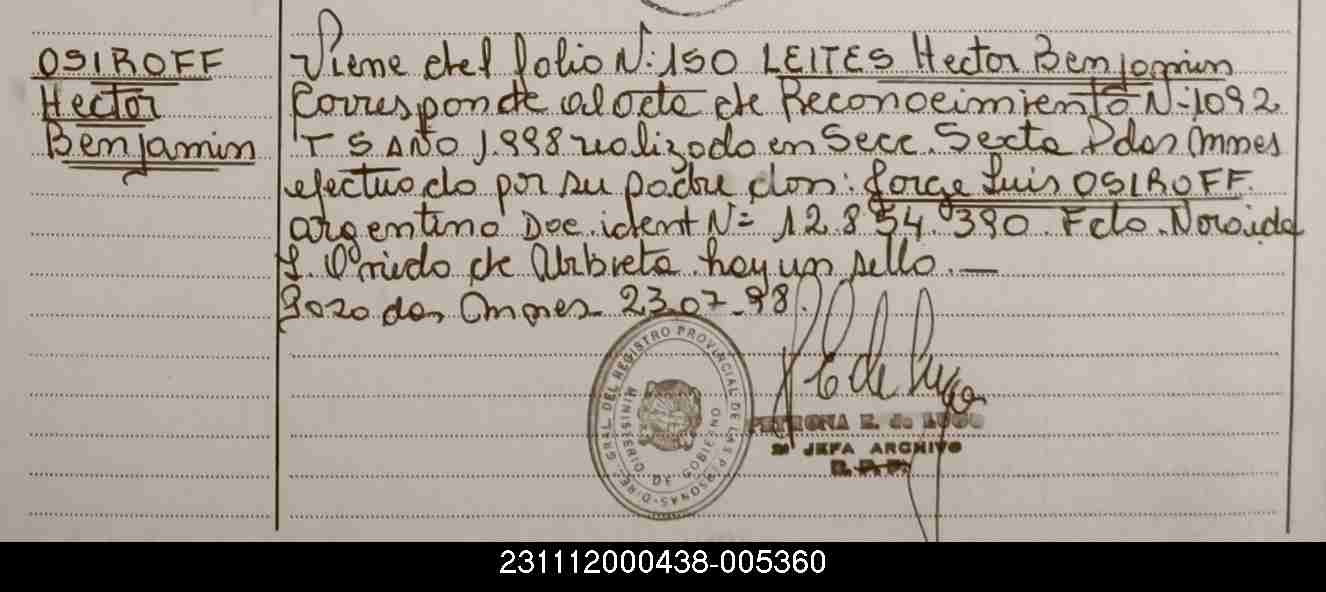 OSIROFF
Hector
Benjamin
Viene del folio N: 150 LEITES Hector Benjamin
Corresponde al acta de Reconocimiento N-1092
T S AÑO 1.998 realizado en Secc. Sexta Pdas Mnes
efectuado por su padre don: Jorge Luis OSIROFF
argentino Doc. ident N= 12.854.390. Fdo. Noraida
de Urbieta. hay un sello. —
Posadas Mnes 23.07-98.
DIREC. GRAL. DEL REGISTRO PROVINCIAL DE LAS PERSONAS
MINISTERIO DE GOBIERNO
PETRONA E. de LUGO
JEFA ARCHIVO
R. P. P.
231112000438-005360